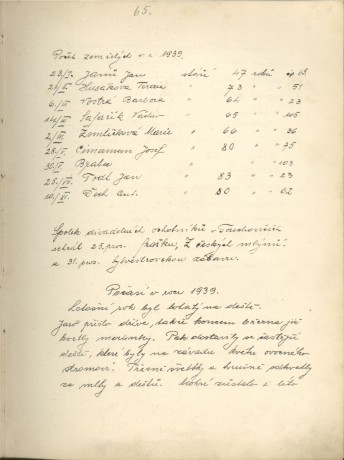 65.
Počet zemřelých v r. 1939.
23/I. Janů Jan stáří 47 roků čp 63
21/II. Husáková Terezie " 73 " " 51
6./III. Vostrá Barbora " 64 " " 23
14/III Šafařík Václav " 65 " " 105
2/III. Žemličková Marie " 66 " " 36
28./V. Cinaman Josef " 80 " " 75
30/V. Brabec " " " 103
25./VI. Podh Jan " 83 " " 23
10/VI. Čech Ant. " 80 " " 62
Spolek divadelních ochotníků v
sehrál 25. pros. frašku, Z českých mlýnů
a 31. pros. Sylvestrovskou zábavu.
Počasí v roce 1939.
Letošní rok byl bohatý na deště.
Jaro přišlo dříve, takže koncem března již
kvetly meruňky. Pak dostavily se častější
deště, které byly na závadu květu ovocného
stromoví. Třešně švestky a hrušně odkvetly
za mlhy a dešťů. Mokré zůstalo i léto